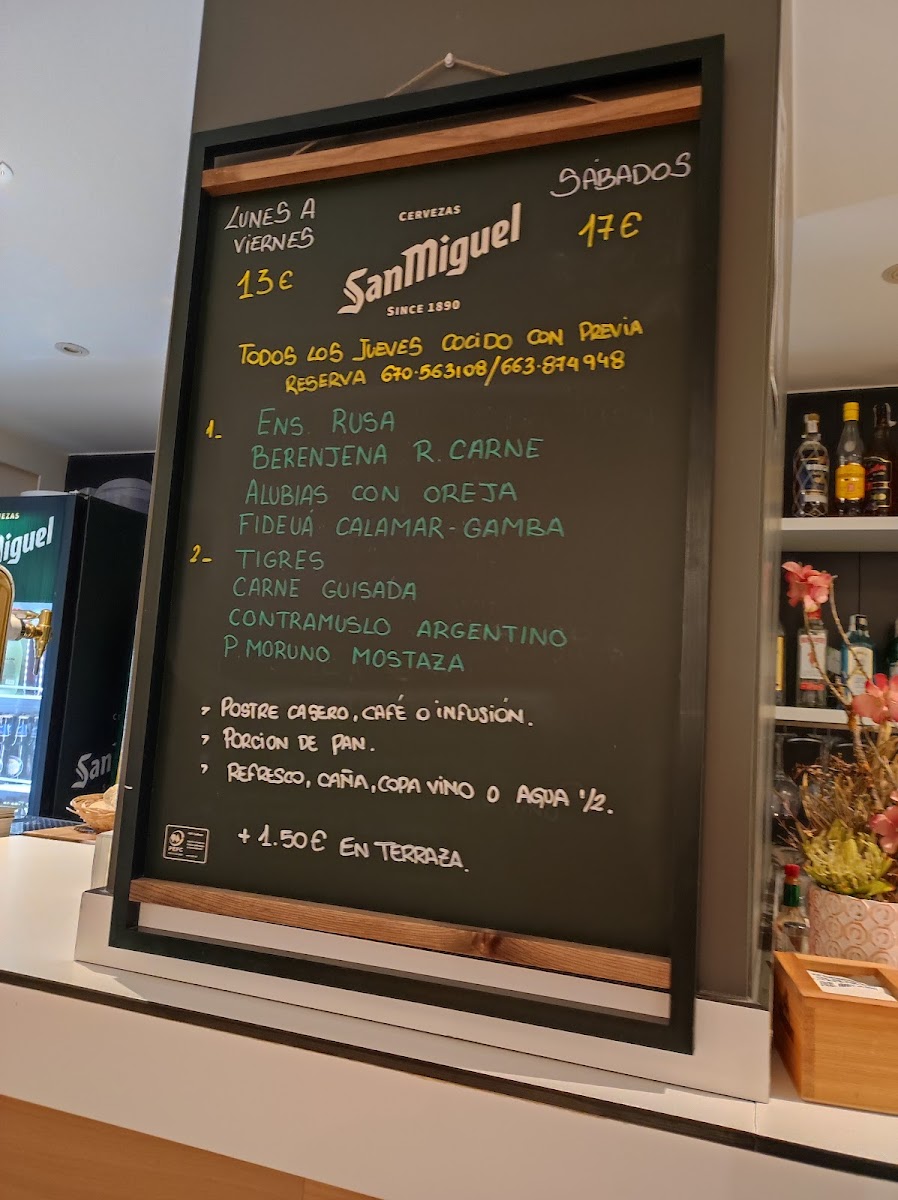 LUNES A
VIERNES
13€
CERVEZAS
SanMiguel
SINCE 1890
SÁBADOS
17€
TODOS LOS JUEVES COCIDO CON PREVIA
RESERVA 670·563108/663·874948
1_ ENS. RUSA
BERENJENA R. CARNE
ALUBIAS CON OREJA
FIDEUÁ CALAMAR-GAMBA
2_ TIGRES
CARNE GUISADA
CONTRAMUSLO ARGENTINO
P. MORUNO MOSTAZA
POSTRE CASERO, CAFÉ O INFUSIÓN.
PORCION DE PAN.
REFRESCO, CAÑA, COPA VINO O AGUA 1/2.
+ 1.50€ EN TERRAZA.
PEFC
iguel
San